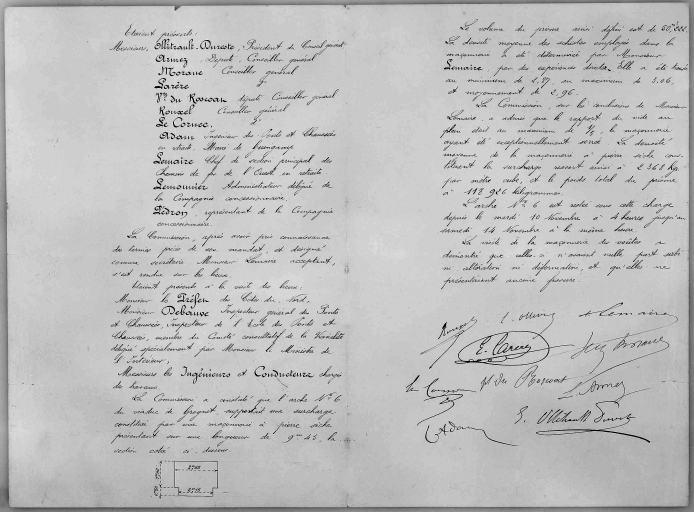 Etaient présents:
Messieurs, Ollitrault-Dureste, Président du Conseil général
Armez Député, Conseiller général
Morane Conseiller général
Larère d°
Vte du Roscoat député Conseiller général
Rouxel Conseiller général
Le Cornec d°
Adam Ingénieur des Ponts et Chaussées
en retraite, Maire de Guingamp
Lemaire Chef de section principal des
Chemins de fer de l'Ouest en retraite
Lemonnier Administrateur délégué de
la Compagnie concessionnaire
Pédron, représentant de la Compagnie
concessionnaire.
La Commission, après avoir pris connaissance
des termes précis de son mandat, et désigné
comme secrétaire Monsieur Lemaire acceptant,
s'est rendue sur les lieux.
Etaient présents à la visite des lieux:
Monsieur le Préfet des Côtes du Nord,
Monsieur Debauve Inspecteur général des Ponts
et Chaussées, Inspecteur de l'Ecole des Ponts et
Chaussées, membre du Comité consultatif de la Vicinalité
délégué spécialement par Monsieur le Ministre de
l'Intérieur;
Messieurs les Ingénieurs et Conducteurs chargés
des travaux.
La Commission a constaté que l'arche N° 6
du viaduc de Grognet supportait une surcharge
constituée par une maçonnerie à pierre sèche
présentant sur une longueur de 9m 45 la
section cotée ci-dessous
Le volume du prisme ainsi défini est de
La densité moyenne des schistes employés dans la
maçonnerie a été déterminée par Monsieur
Lemaire par des expériences directes. Elle a été trouvée
au minimum de 2,87, au maximum de 3,06,
et moyennement de 2,96.
La Commission, sur les conclusions de Monsieur
Lemaire, a admis que le rapport du vide au
plein était au maximum de 1/5, la maçonnerie
ayant été exceptionnellement serrée. La densité
moyenne de la maçonnerie à pierre sèche constituant
la surcharge ressort ainsi à 2368 Kgr
par mètre cube, et le poids total du prisme
à 118 926 kilogrammes.
L'arche N° 6 est restée sous cette charge
depuis le mardi 10 Novembre à 4 heures jusqu'au
samedi 14 Novembre à la même heure.
La visite de la maçonnerie des voûtes a
démontré que celles-ci n'avaient nulle part subi
ni altération ni déformation, et qu'elles ne
présentaient aucune fissure.
A Lemaire
E. Larère
Le Cornec
Vte du Roscoat
L. Armez
C. Adam
E. Ollitrault Dureste